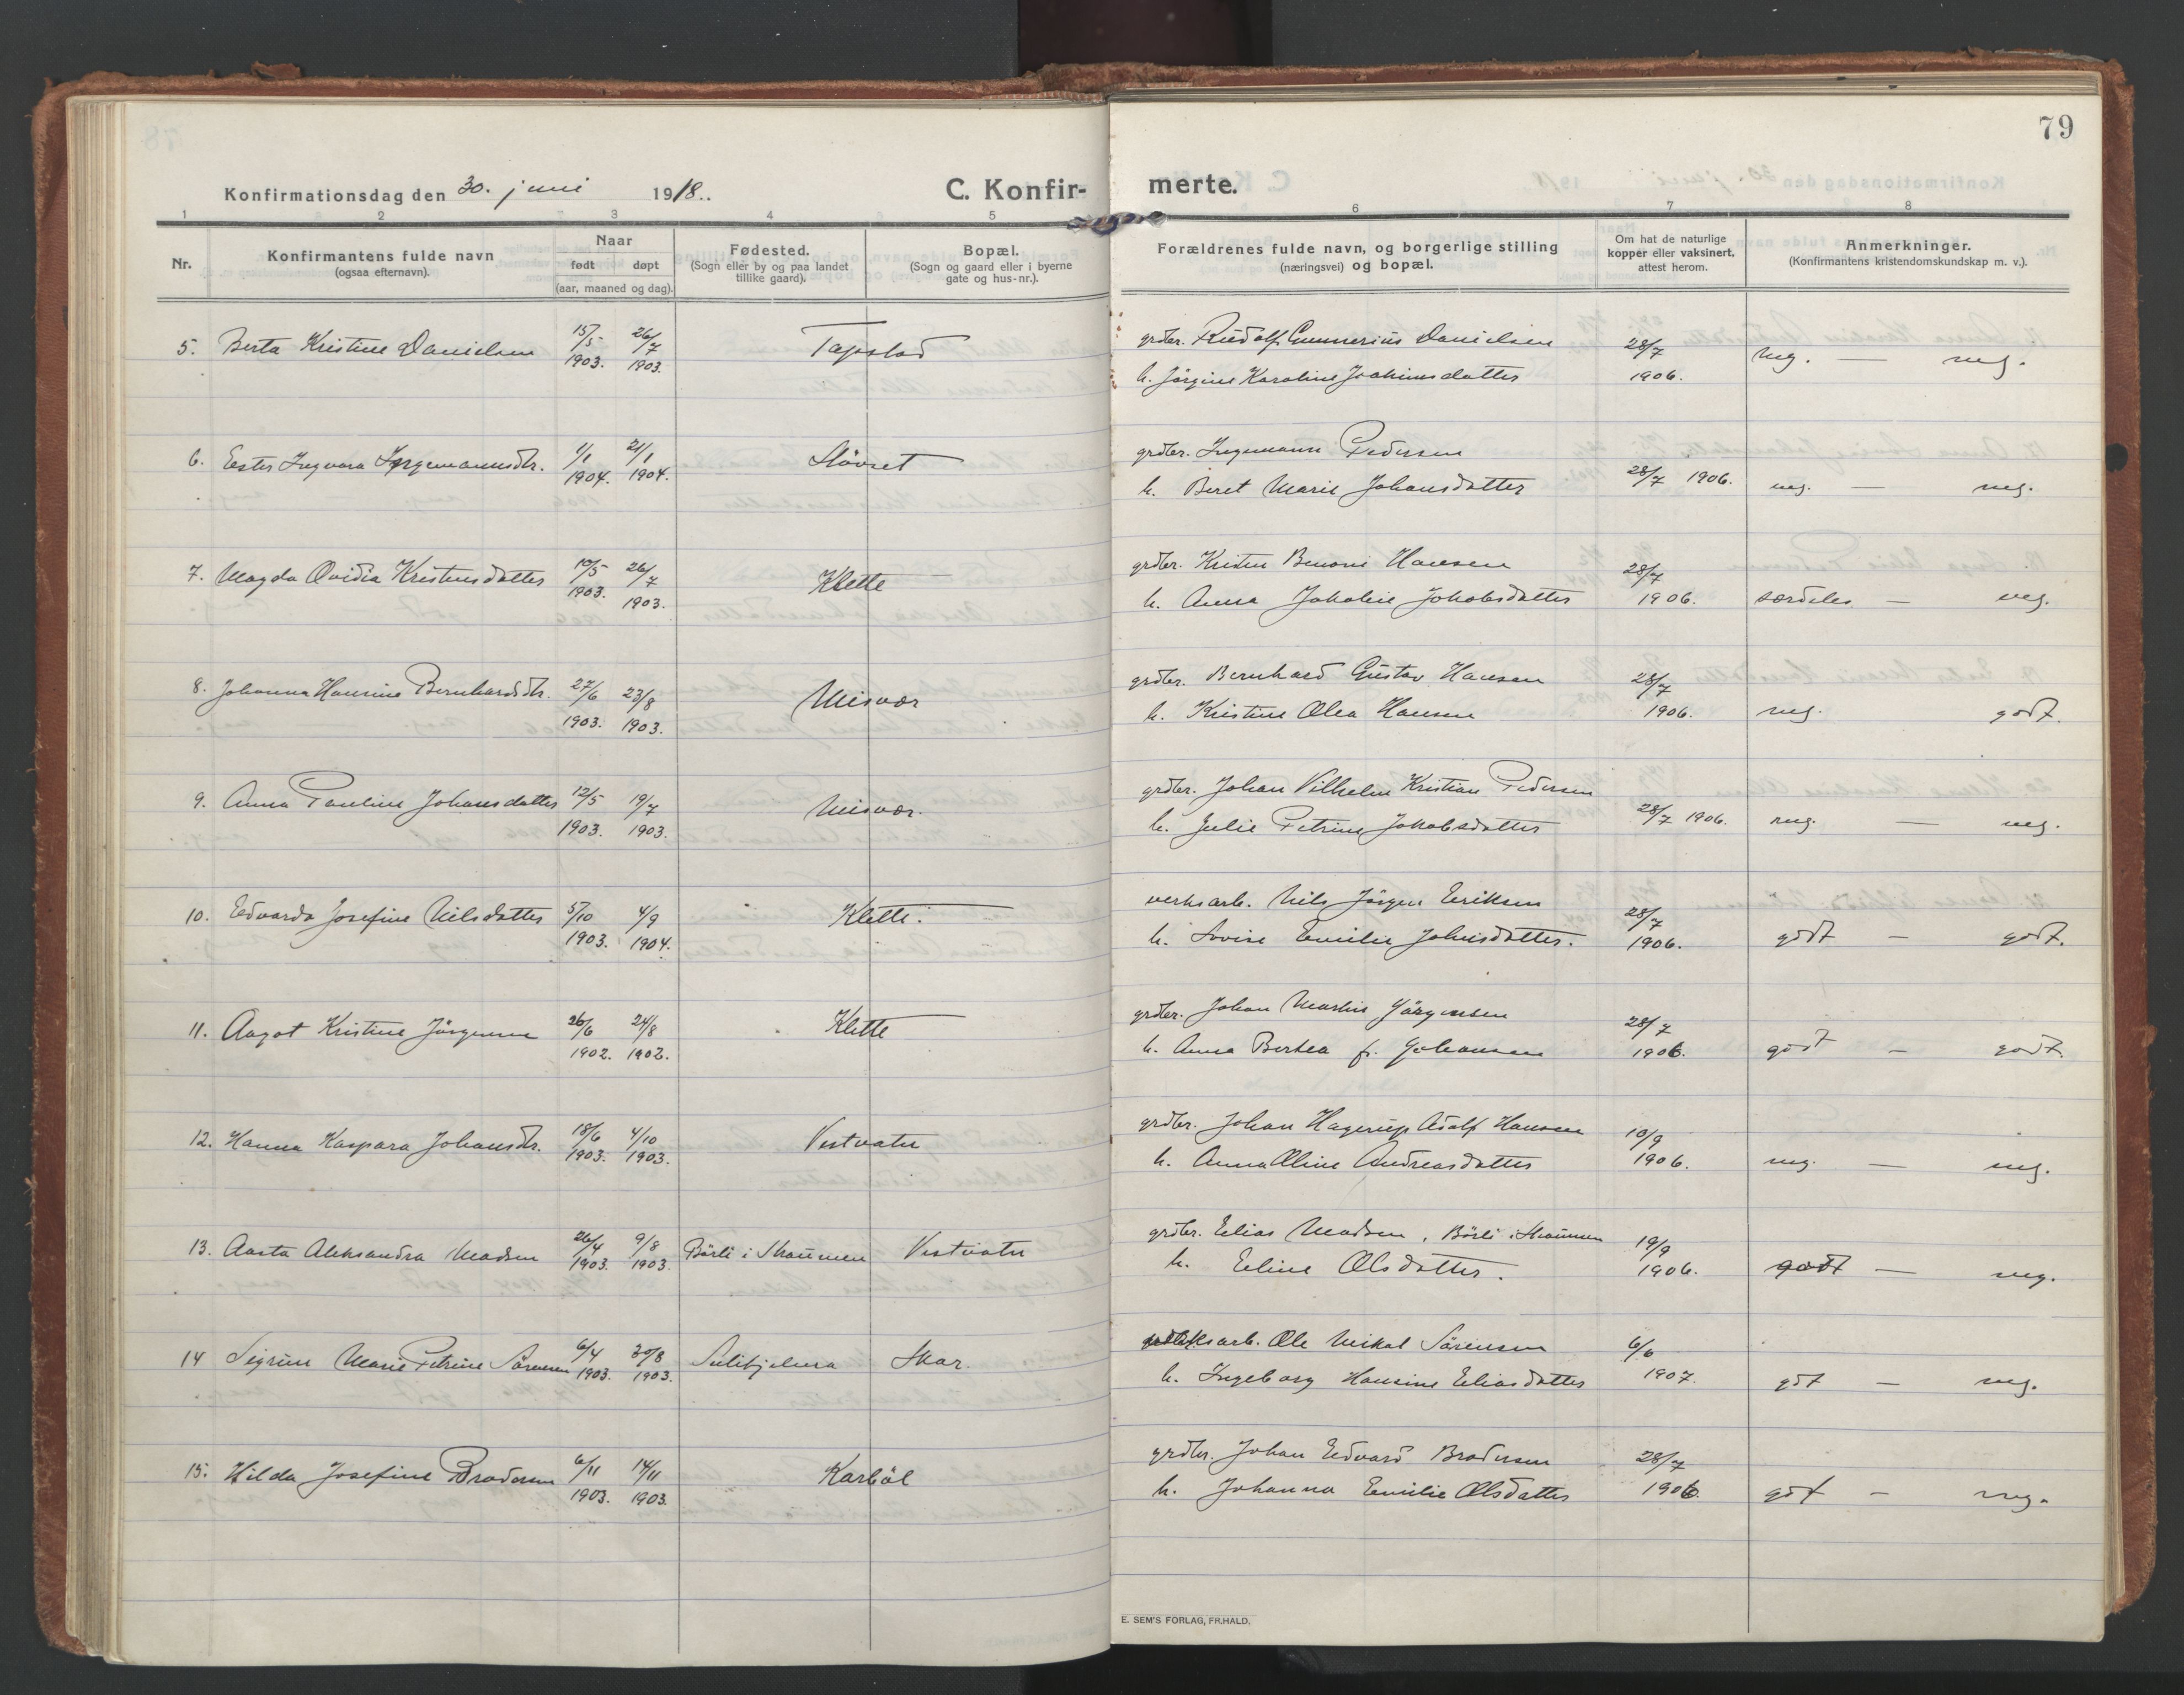 79
Konfirmationsdag den 30. juni 1918.. C. Konfirmerte.
1 2 3 4 5 6 7 8
Nr.
Konfirmantens fulde navn
(ogsaa efternavn).
Naar
født døpt
(aar, maaned og dag).
Fødested.
(Sogn eller by og paa landet
tillike gaard).
Bopæl.
(Sogn og gaard eller i byerne
gate og hus-nr.).
Forældrenes fulde navn, og borgerlige stilling
(næringsvei) og bopæl.
Om hat de naturlige
kopper eller vaksinert,
attest herom.
Anmerkninger.
(Konfirmantens kristendomskundskap m. v.).
5. Berta Kristine Danielsen 15/5 1903. 26/7 1903. Tapstad
grdbr. Rudolf Gunnerius Danielsen
h. Jørgine Karoline Joakimsdatter 28/7 1906. meg. — meg.
6. Ester Ingvara Ingemannsdtr. 1/1 1904. 21/1 1904. Støvset
grdbr. Ingemann Pedersen
h. Beret Marie Johansdatter 28/7 1906. meg. — meg.
7. Magda Ovidia Kristensdatter 10/5 1903. 26/7 1903. Klette
grdbr. Kristen Benoni Hansen
h. Anna Jakobie Jakobsdatter 28/7 1906. særdeles — meg.
8. Johanna Hansine Bernhardsdtr. 27/6 1903. 23/8 1903. Misvær
grdbr. Bernhard Gustav Hansen
h. Kristine Olea Hansen 28/7 1906. meg. godt.
9. Anna Pauline Johansdatter 12/5 1903. 19/7 1903. Misvær.
grdbr. Johan Vilhelm Kristian Pedersen
h. Julie Petrine Jakobsdatter 28/7 1906. meg. — meg.
10. Edvarda Josefine Nilsdatter 5/10 1903. 4/9 1904. Klette.
verksarb. Nils Jörgen Eriksen
h. Lovise Emilie Johnsdatter. 28/7 1906. godt — godt.
11. Aagot Kristine Jörgensen 26/6 1902. 24/8 1902. Klette
grdbr. Johan Martin Jörgensen
h. Anna Bertea f. Johansen 28/7 1906. godt — godt.
12. Hanna Kaspara Johansdtr. 18/6 1903. 4/10 1903. Vestvatn
grdbr. Johan Hagerup Adolf Hansen
h. Anna Oline Andreasdatter 10/9 1906. meg. — meg.
13. Aasta Aleksandra Madsen 26/4 1903. 9/8 1903. Börli i Skaumen Vestvatn
grdbr. Elias Madsen, Börli i Skaumen
h. Eline Olsdatter. 19/9 1906. godt — meg.
14 Sigrun Marie Petrine Sörensen 6/4 1903. 30/8 1903. Sulitjelma Skar.
verksarb. Ole Mikal Sörensen
h. Ingeborg Hansine Eliasdatter 6/6 1907. gdt — meg.
15. Hilda Josefine Brodersen 6/11 1903. 14/11 1903. Karböl
grdbr. Johan Edvard Brodersen
h. Johanna Emilie Olsdatter 28/7 1906. gdt — meg.
E. SEM'S FORLAG, FR.HALD.